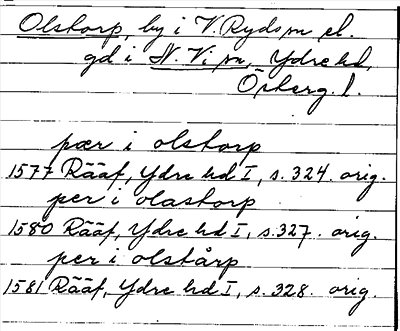 Olstorp, by i V. Ryds sn el.
gd i N. Vi sn, Ydre hd,
Österg. l.
pær i olstorp
1577 Rääf, Ydre hd I, s. 324. orig.
per i olastorp
1580 Rääf, Ydre hd I, s. 327. orig.
per i olstårp
1581 Rääf, Ydre hd I, s. 328. orig.